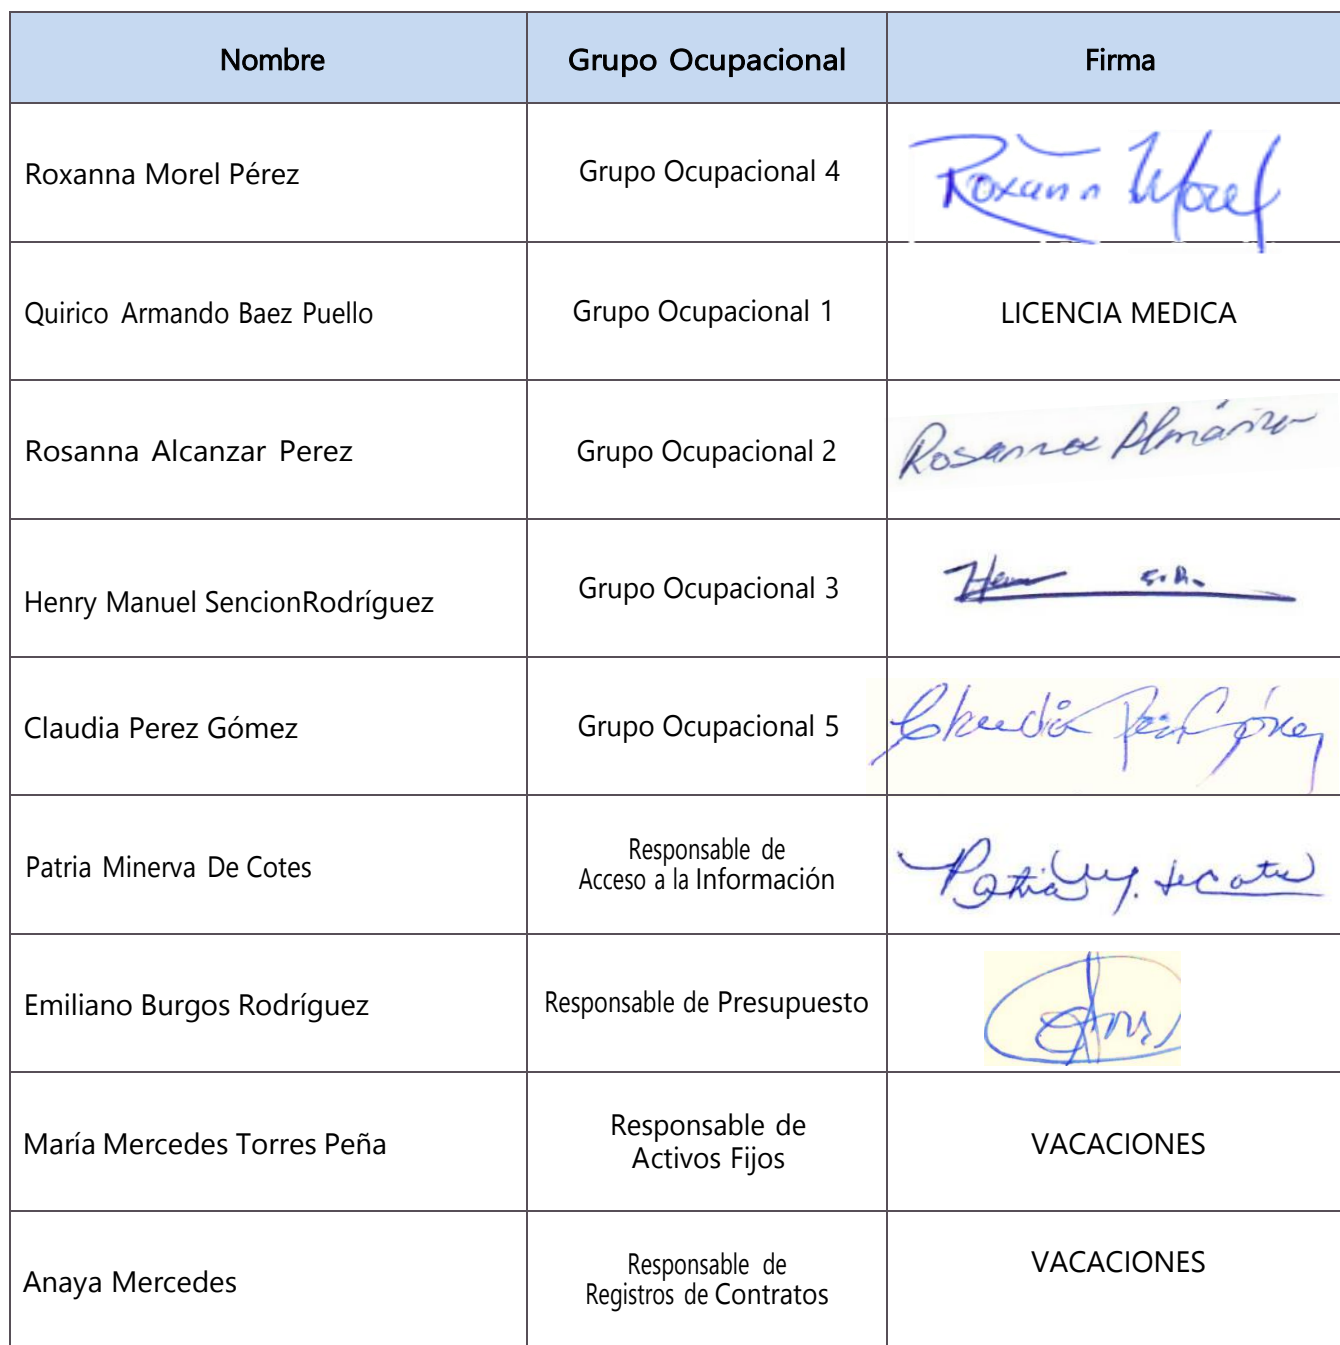 Nombre Grupo Ocupacional Firma
Roxanna Morel Pérez Grupo Ocupacional 4 Roxann Morel
Quirico Armando Baez Puello Grupo Ocupacional 1 LICENCIA MEDICA
Rosanna Alcanzar Perez Grupo Ocupacional 2 Rosanna
Henry Manuel SencionRodríguez Grupo Ocupacional 3
Claudia Perez Gómez Grupo Ocupacional 5 Claudia Gómez
Patria Minerva De Cotes
Responsable de
Acceso a la Información
Patria M. de Cotes
Emiliano Burgos Rodríguez Responsable de Presupuesto
María Mercedes Torres Peña
Responsable de
Activos Fijos
VACACIONES
Anaya Mercedes
Responsable de
Registros de Contratos
VACACIONES